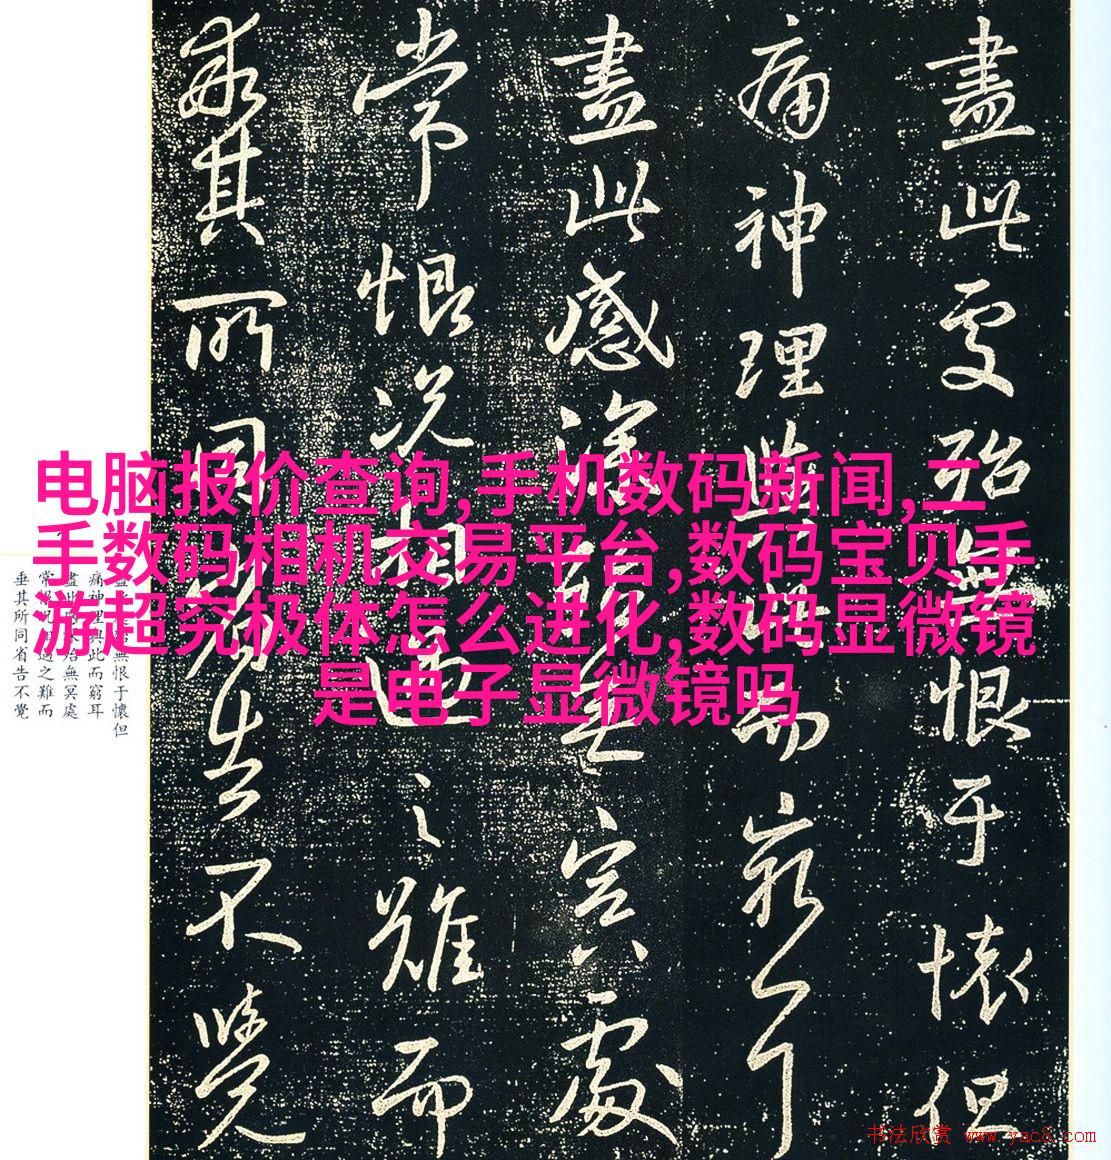 電脑报价查询,手机数码新闻,二
手数码相机交易平台,数码宝贝手
游超究极体怎么进化,数码显微镜
是电子显微镜吗
盡此處殆無恨于懷但
痛神理與此而窮耳
盡此感深無冥處
常恨況相遇之難而
垂其所同省告不覺
盡無恨于懷但
痛神理與此而窮耳
盡此居無冥處
常恨況相遇之難而
垂其所同省告不覺
书法欣赏 www.yac8.com